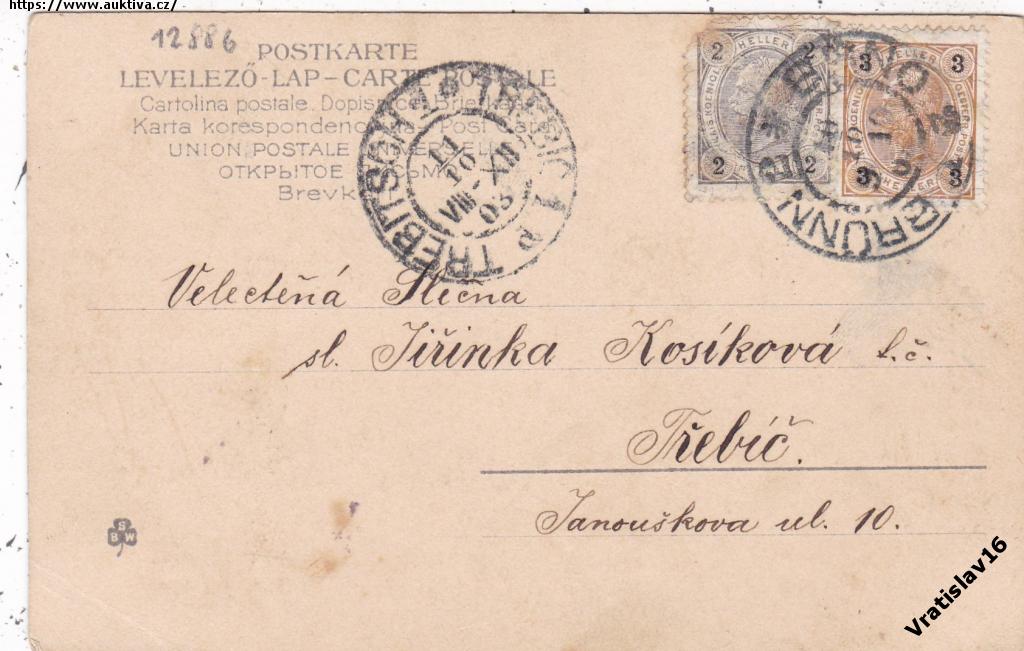 https://www.auktiva.cz/
12886
POSTKARTE
LEVELEZŐ-LAP-CARTE POSTALE
Cartolina postale. Dopisnice
Karta korespondencyjna Post Card
UNION POSTALE UNIVERSELLE
ОТКРЫТОЕ ПИСЬМО
Brevk
TREBITSCH
TŘEBÍČ 1
11
10
VIII-XII
03
2 2
HELLER
2 2
3 3
HELLER
3 3
BRNO
BRÜNN
Velectěná Slečna
sl. Jiřinka Kosíková
Třebíč.
Janouškova ul. 10.
S
B W
Vratislav16